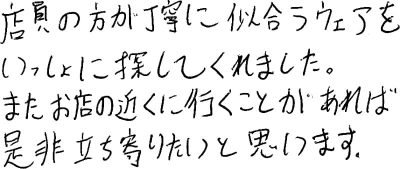 店員の方が丁寧に似合うウェアを
いっしょに探してくれました。
またお店の近くに行くことがあれば
是非立ち寄りたいと思います。